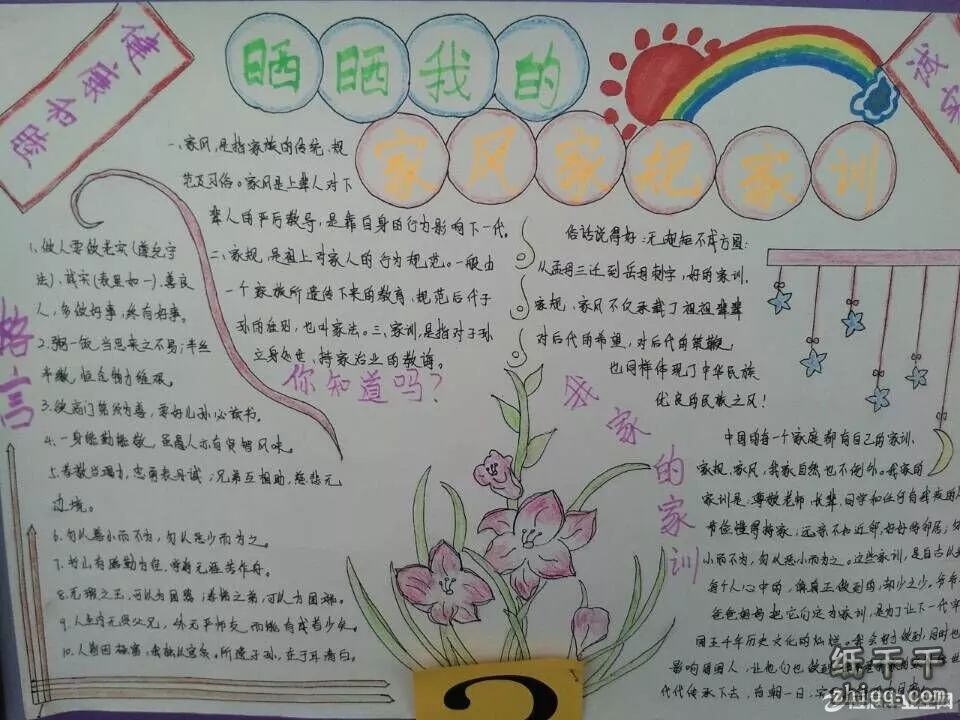 健康和睦
晒晒我的
家风家规家训
诚实
一、家风,是指家族的传统、规
范及习俗。家风是上辈人对下
辈人的严厉教导,是靠自身的行为影响下一代。
二、家规,是祖上对家人的行为规范。一般由
一个家族所遗传下来的教育、规范后代子
孙的准则,也叫家法。三、家训,是指对子孙
立身处世、持家治业的教诲。
你知道吗?
俗话说得好:无规矩不成方圆:
从孟母三迁到岳母刺字,好的家训、
家规、家风不仅承载了祖祖辈辈
对后代的希望,对后代的鞭策,
也同样体现了中华民族
优良的民族之风!
格言
1、做人要做老实(遵纪守
法)、诚实(表里如一)、善良
人,多做好事,终有好事。
2、粥一饭,当思来之不易;半丝
半缕,恒念物力维艰。
3、欲高门第须为善,要好儿孙必读书。
4、一身能勤能敬,虽愚人亦有贤智风味。
5、孝敬当竭力,忠勇表丹诚;兄弟互相助,慈悲无
边境。
6、勿以善小而不为,勿以恶小而为之。
7、书山有路勤为径,学海无涯苦作舟。
8、无瑕之玉,可以为国器;孝悌之弟,可以为国瑞。
9、人生内无贤父兄,外无严师友,而能有成者少矣。
10、
我家的家训
中国的每一个家庭都有自己的家训、
家规、家风,我家自然也不例外。我家的
家训是:尊敬老师、长辈、同学和任何
节俭懂得持家,远亲不如近邻,好好的邻居;勿
小而不为,勿以恶小而为之。这些家训,是自古以
每个人心中的,像真正做到的,却少之少。爷爷
爸爸妈妈把它们定为家训,是为了让下一代
国五千年历史文化的灿烂。
影响周围人,让他们也做到
代代传承下去,
纸千千
zhiqq.com